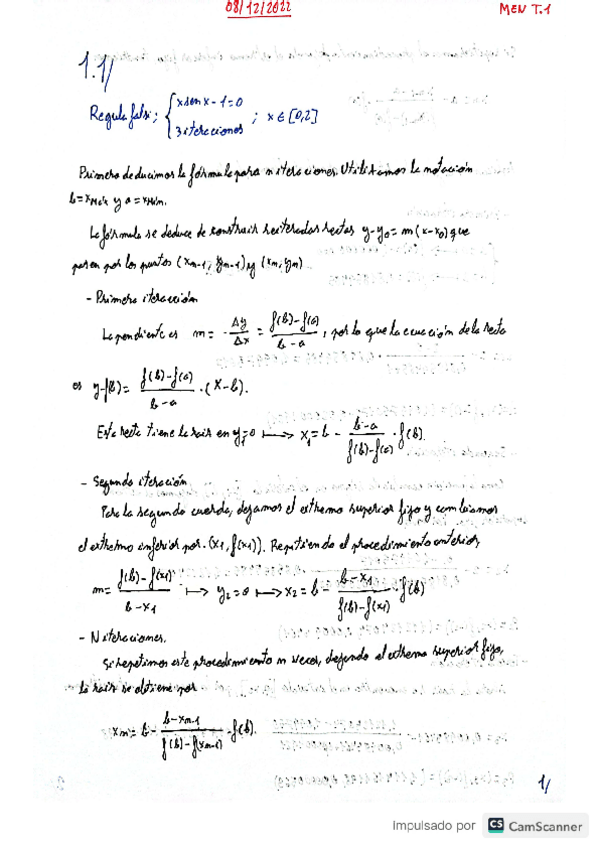 08/12/2022
MEN T.1
1.1/
Regula falsi; { x sen x - 1 = 0 ; x ∈ [0,2]
3 iteraciones
Primero deducimos la fórmula para n iteraciones. Utilizamos la notación
b = xMáx y a = xMín.
La fórmula se deduce de construir reiteradas rectas y-y₀ = m(x-x₀) que
pasen por los puntos (xn-1, yn-1) y (xn, yn)
- Primera iteración
La pendiente es m = Δy/Δx = f(b)-f(a)/b-a, por lo que la ecuación de la recta
es y-f(b) = f(b)-f(a)/b-a · (x-b).
Esta recta tiene la raíz en y₁=0 ↦ x₁ = b - b-a/f(b)-f(a) · f(b).
- Segunda iteración
Para la segunda cuerda, dejamos el extremo superior fijo y cambiamos
el extremo inferior por (x₁, f(x₁)). Repitiendo el procedimiento anterior,
m = f(b)-f(x₁)/b-x₁ ↦ y₂=0 ↦ x₂ = b - b-x₁/f(b)-f(x₁) · f(b)
- N iteraciones.
Si repetimos este procedimiento n veces, dejando el extremo superior fijo,
la raíz se obtiene por
xn = b - b-xn-1/f(b)-f(xn-1) · f(b).
1/
Impulsado por CS CamScanner